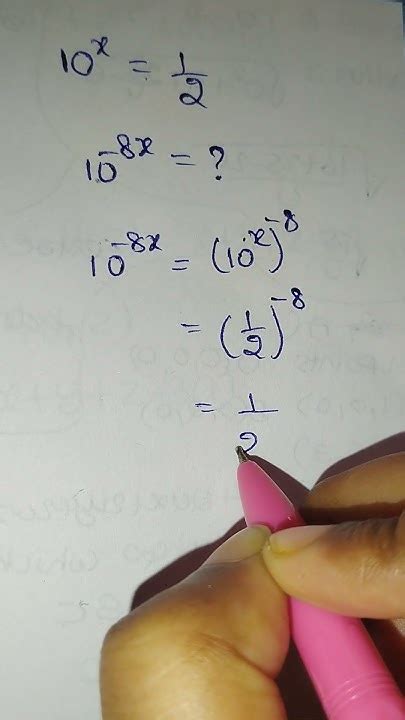 10^x = 1/2
10^-8x = ?
10^-8x = (10^x)^-8
= (1/2)^-8
= 1/2